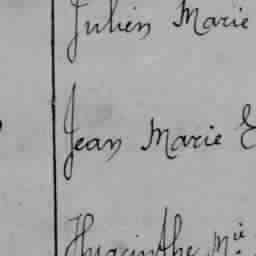 Julien Marie
Jean Marie E
Hyacinthe Mie